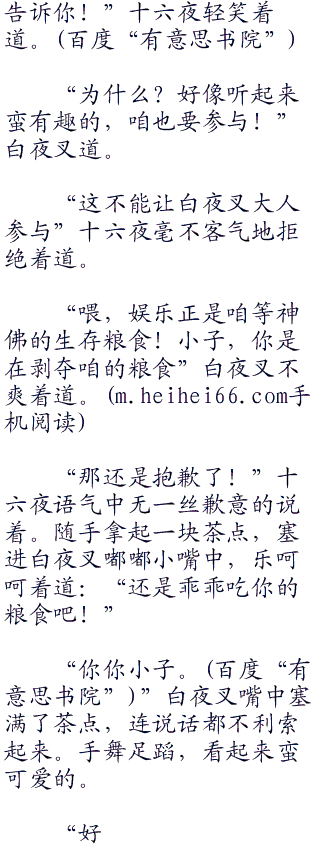 告诉你！”十六夜轻笑着
道。(百度“有意思书院”)
“为什么？好像听起来
蛮有趣的，咱也要参与！”
白夜叉道。
“这不能让白夜叉大人
参与”十六夜毫不客气地拒
绝着道。
“喂，娱乐正是咱等神
佛的生存粮食！小子，你是
在剥夺咱的粮食”白夜叉不
爽着道。(m.heihei66.com手
机阅读)
“那还是抱歉了！”十
六夜语气中无一丝歉意的说
着。随手拿起一块茶点，塞
进白夜叉嘟嘟小嘴中，乐呵
呵着道：“还是乖乖吃你的
粮食吧！”
“你你小子。(百度“有
意思书院”)”白夜叉嘴中塞
满了茶点，连说话都不利索
起来。手舞足蹈，看起来蛮
可爱的。
“好